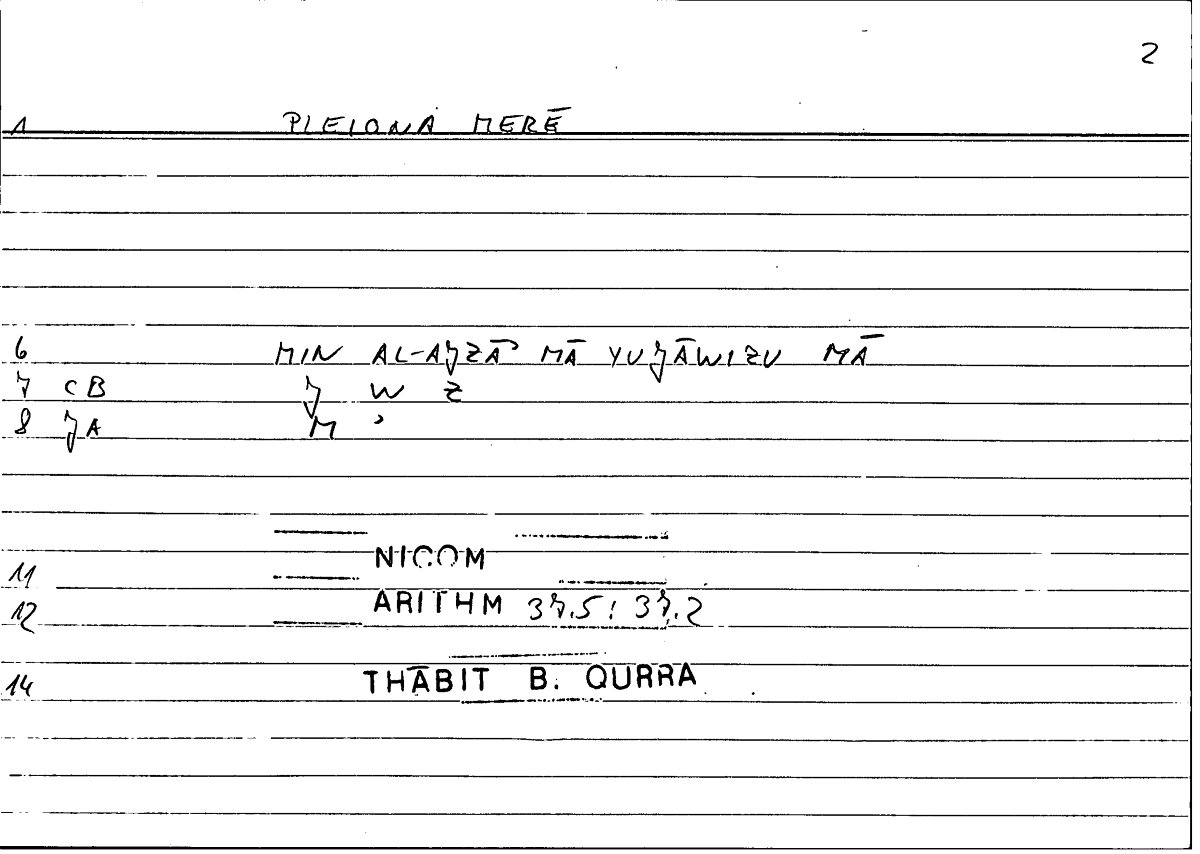 2
1 PLEIONA MERĒ
6 MIN AL-AJZĀʾ MĀ YUJĀWIZU MĀ
7 CB J W Z
8 JA M ʾ
11 NICOM
12 ARITHM 37.5 : 37.2
14 THĀBIT B. QURRA